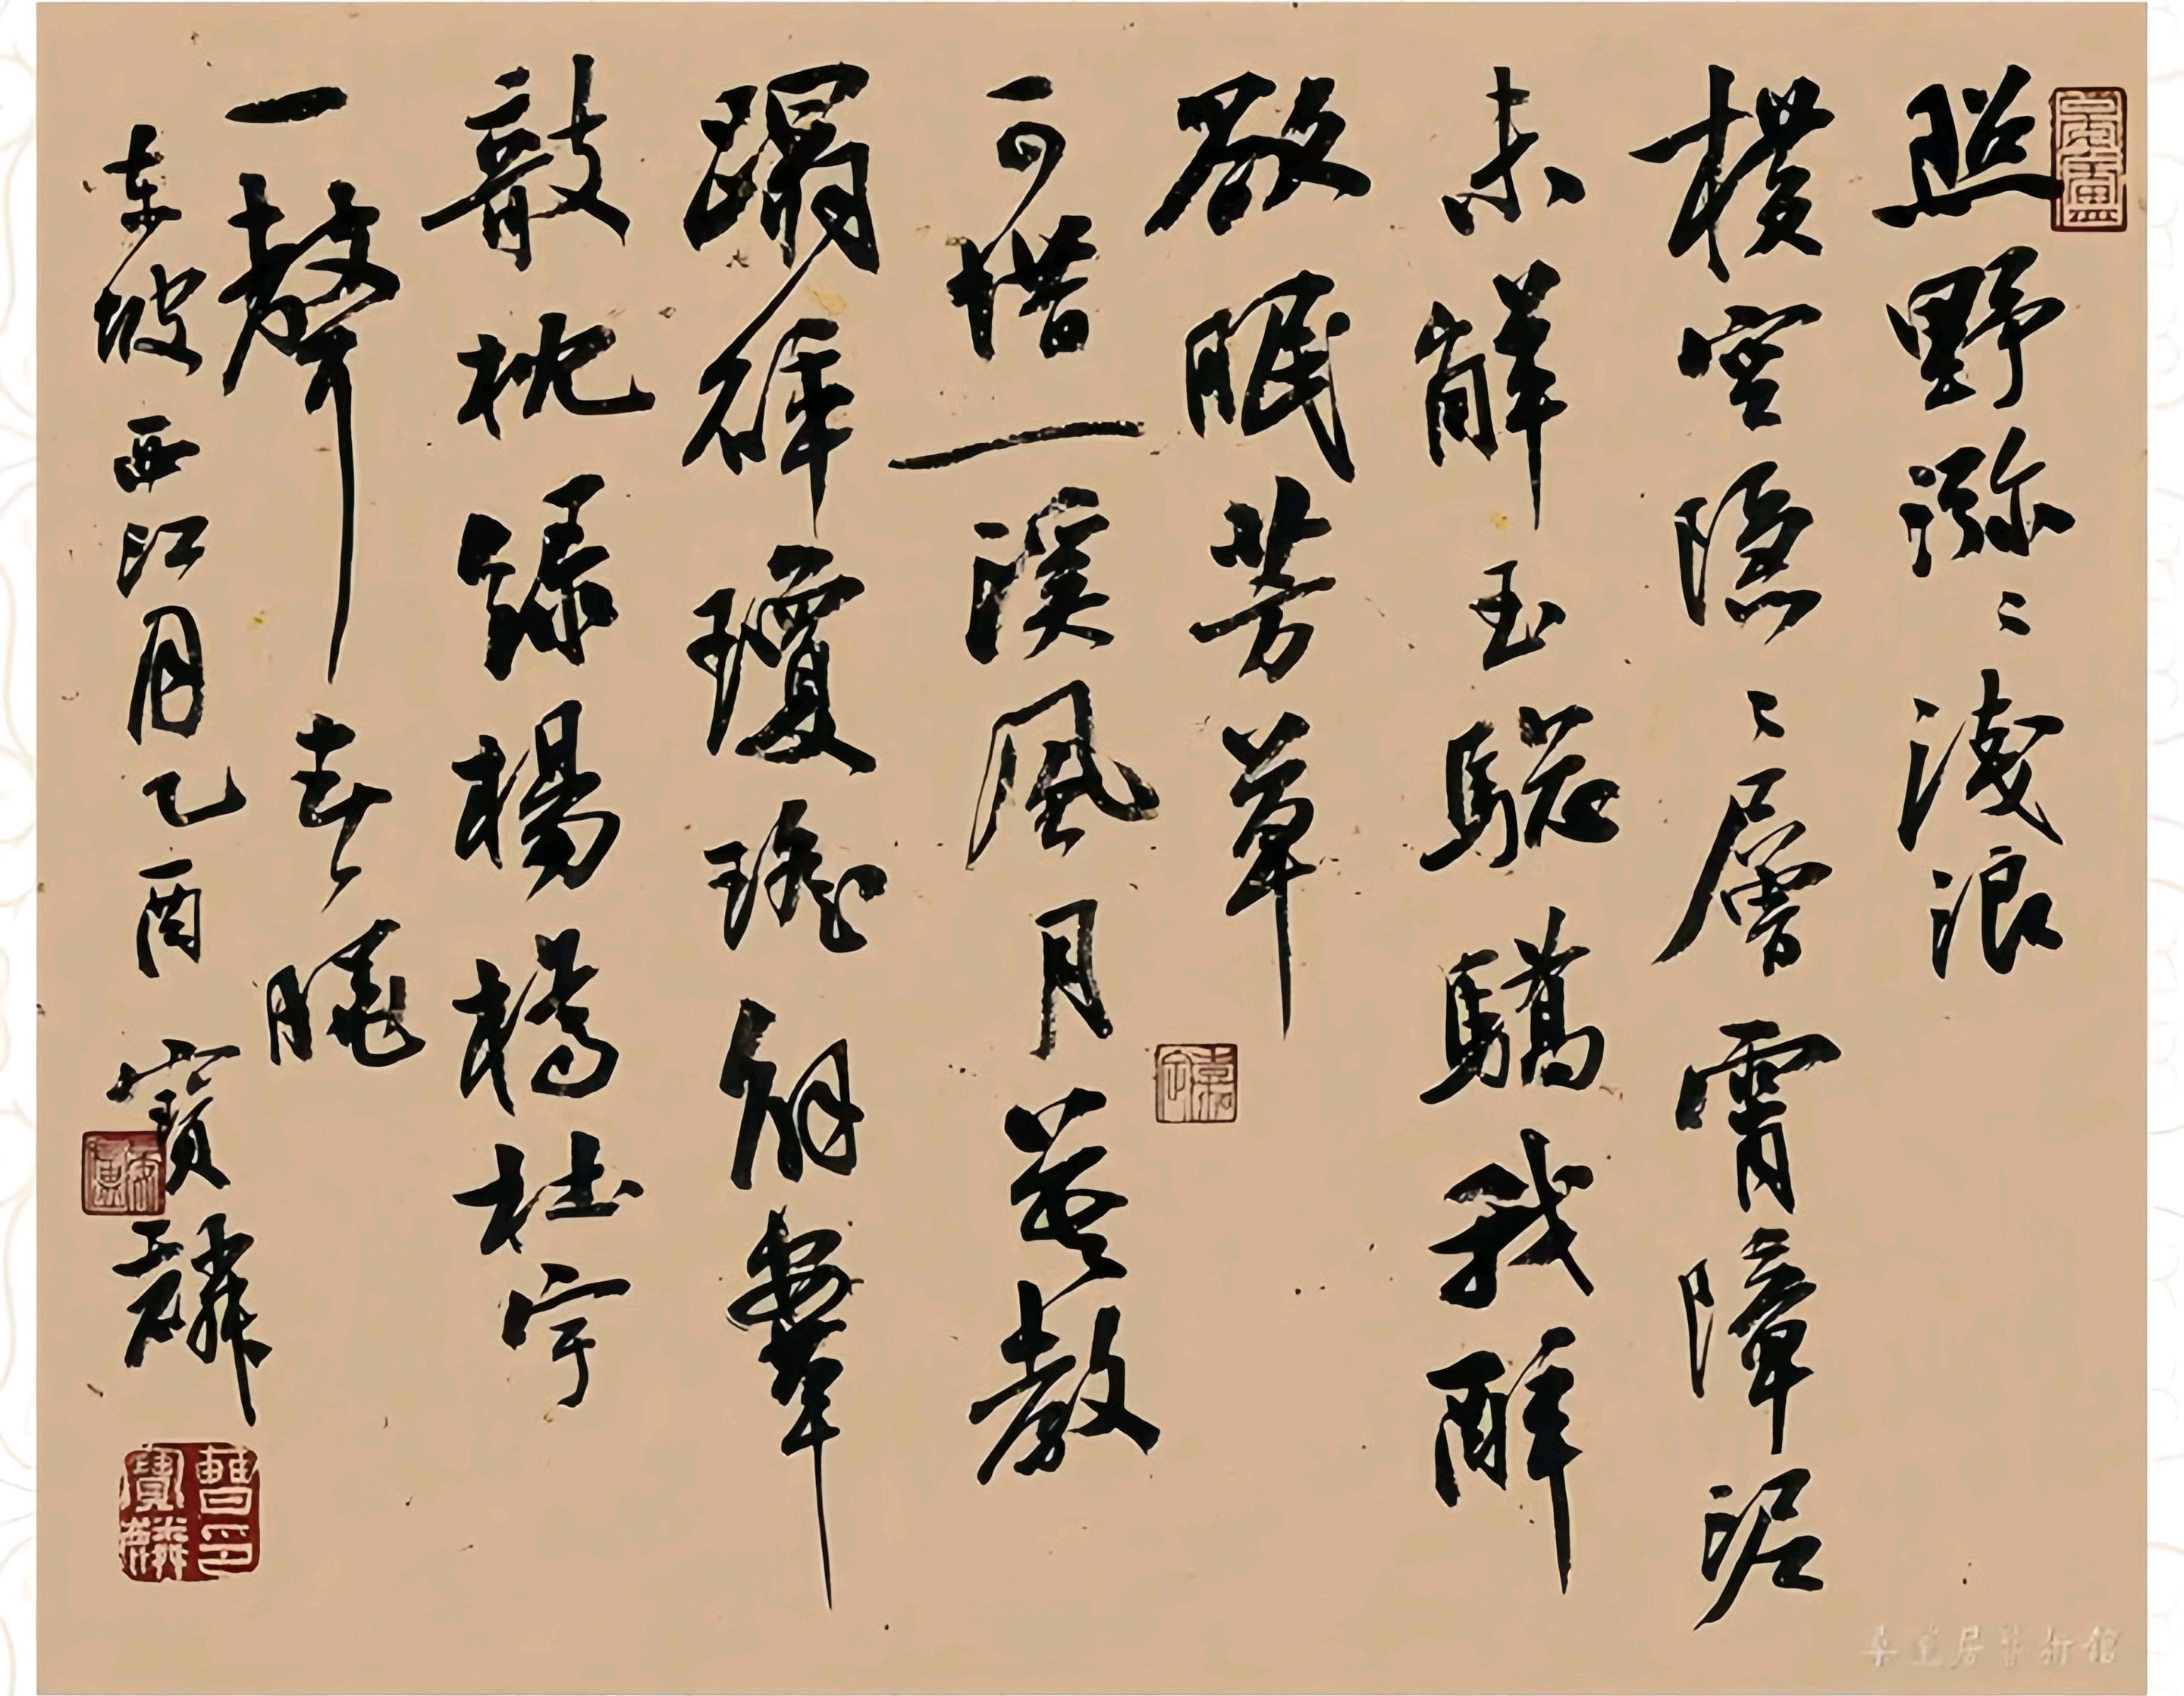 照野㳽〻淺浪
橫空隱〻層霄障泥
未解玉驄驕我醉
欲眠芳草
可惜一溪風月莫教
蹋碎瓊瑤解鞍
敧枕綠楊橋杜宇
一聲春曉
東坡西江月乙酉 寶麟
曹印寶麟